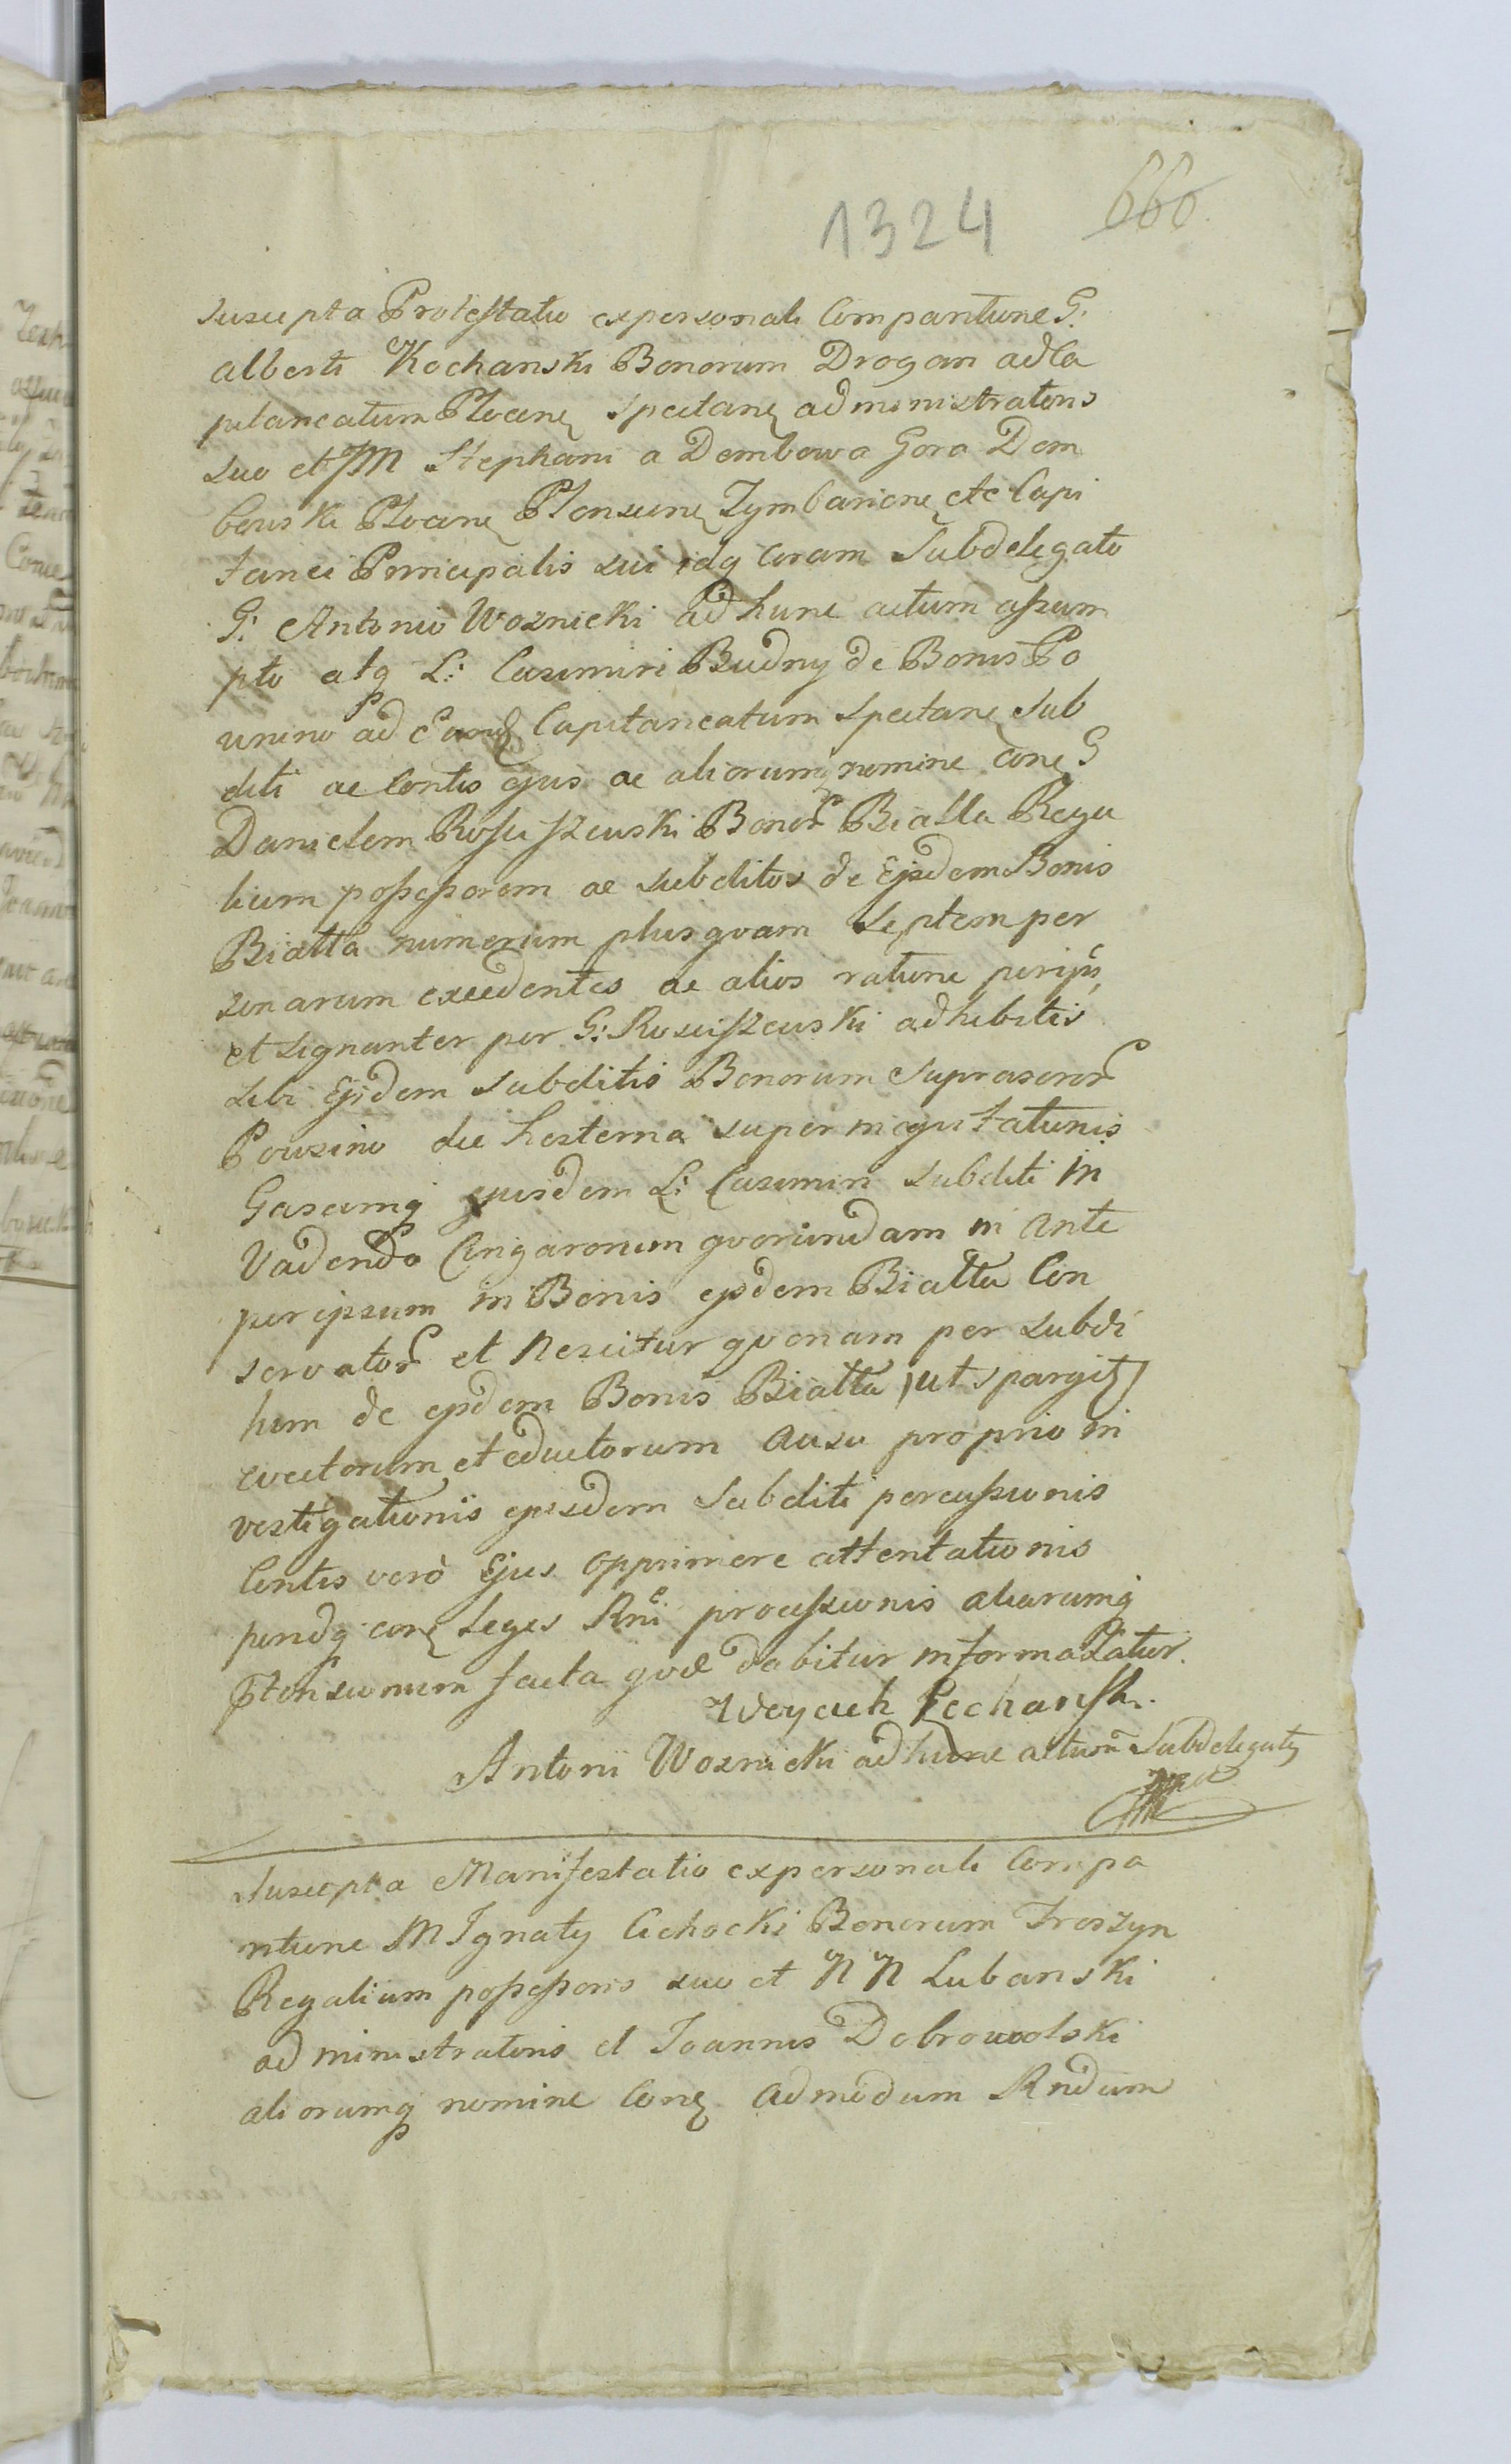 1324 666.
Suscepta Protestatio ex personali Comparitione G:
Alberti Kochanski Bonorum Drogan ad Ca
pitaneatum Plocen spectanę administratoris
suo et M Stephani a Dembowa Gora Dem
bowski Plocenę Plonscenę Zymbarienę etc Capi
tanei Principalis sui idq coram Subdelegato
G: Antonio Woznicki ad hunc actum assum
pto atq L: Casimiri Budny de Bonis Po
wsino ad eand Capitaneatum spectanę Sub
diti ac Contis ejus ac aliorumq nomine Conę G
Danielem Rosciszewski Bonor Bialla Rega
lium possessorem ac subditos de Ejsdem Bonis
Bialla numerum plusquam septem per
sonarum excedentes ac alios ratione
et signanter per G: Rosciszewski adhibitis
sibi Ejsdem subditis Bonorum Suprascr
Powsino die hesterna super
ejusdem L: Casimiri subditi in
Vadendo Cingarorum quorundam in ante
per ipsum in Bonis ejsdem Bialla Con
servator et nescitur quonam per subdi
tum de ejsdem Bonis Bialla (ut spargit)
evectorum et eductorum ausu proprio in
vestigationis ejusdem Subditi percussionis
Contis verò Ejus opprimere attentationis
conę leges Rni processionis aliarumq
Ptensionum facta quae dabitur informa Latur.
Woyciech Kochansk.
Antoni Woznicki ad hunc actum Subdelegatq
Suscepta Manifestatio ex personali Compa
ritione M Ignaty Cichocki Bonorum Troszyn
Regalium possessoris suo et N N Lubanski
administratoris et Joannis Dobrowolski
aliorumq nomine Conę Admodum Rndum